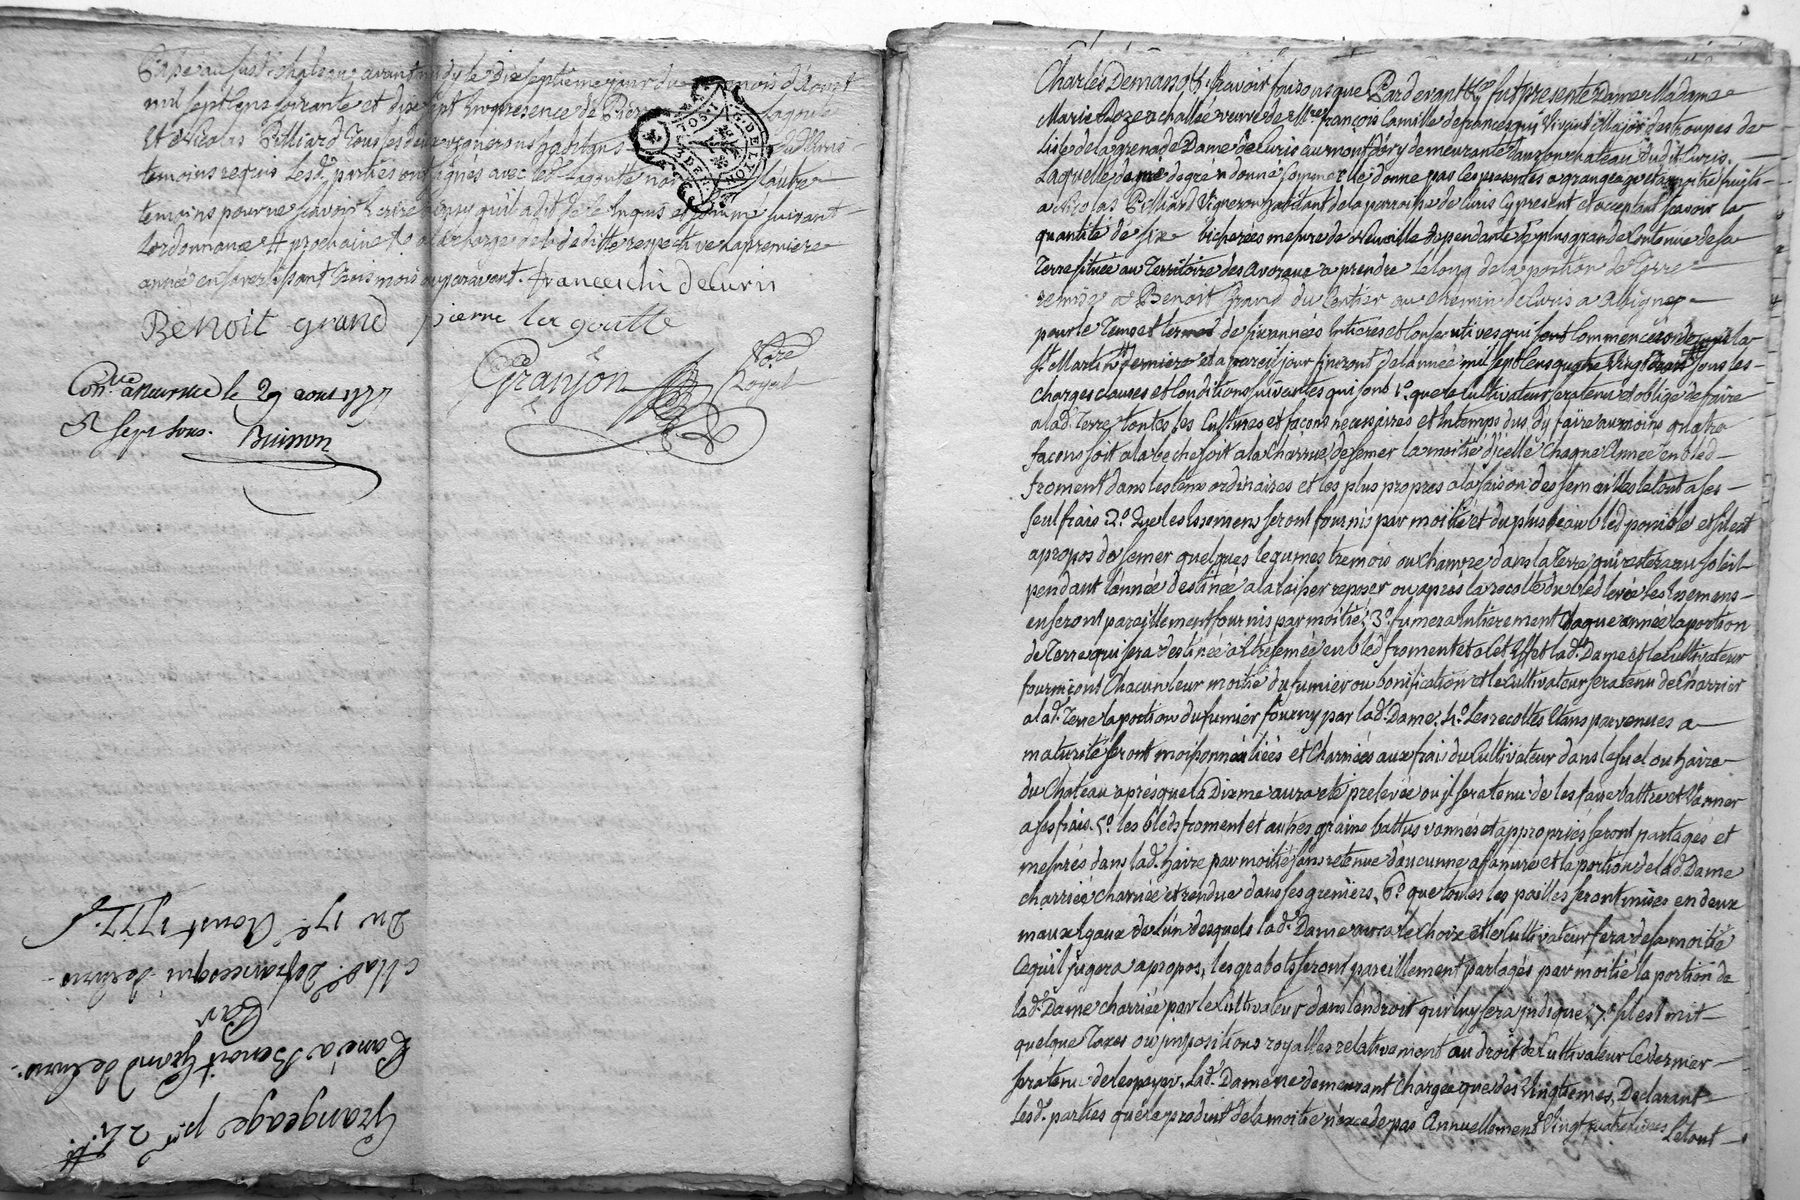 fait et passé au susd. chateau avant midy le dix septieme jour du mois d'Aoust
mil sept cens soixante et dix sept En presence de Pierre Lagoutte
et Nicolas Billiard tous les deux vignerons habitans de Curis
temoins requis Lesd. parties ont signés avec led. Lagoutte non l'autre
temoins pour ne scavoir Ecrire ainsy qu'il a dit de ce Enquis et sommé suivant
Lordonnance # prochaine a la charge de la deditte respective de la premiere
année en s'avertissant trois mois auparavant. franceschi deCuris
Benoit grand pierre la goutte
Granjon Nore Royal
Conlé a Neufville le 29 aoust 1777
R sept sous. Buisson
Grangeage pr. 24 #.
Passé a Benoit Grand de Curis.
Par
Mad. Defrancesqui de Curis
Du 17e. Aoust 1777.
Charles Demasso & Scavoir faisons que Pardevant & fut presente Dame Madame
Marie Roze Achallée veuve de Mre. françois Camille defrancesqui Vivant Major des troupes de
l'isle de la grenade Dame de Curis au mont d'or y demeurante dans son chateau dudit Curis.
Laquelle dame de gré a donné comme elle donne par les presentes a grangeage et a moitié fruits
a Nicolas Billiard Vigneron habitant de la parroisse de Curis Cy present et acceptant scavoir la
quantité de six bicherées mesure de Neuville dependante de plus grande Contenue de sa
Terre située au Territoire des avoraux a prendre le long de la portion de Terre
remise a Benoit Grand du Centier au chemin de Curis a Albigny
pour le Tems et terme de six années Entieres et Consecutives qui sont Commencées des la
St. Martin derniere et a pareil jour finiront de lannée mil sept cens quatre vingt deux sous les
charges clauses et Conditions suivantes qui sont 1o. que le Cultivateur sera tenu et obligé de faire
a lad. Terre toutes les Cultures et façons necessaires et En temps dus, d'y faire au moins quatre
façons soit a la beche soit a la Charrue, de semer la moitié d'icelle Chaque Année en bled
froment dans les tems ordinaires et les plus propres a la saison des semailles le tout a ses
seul frais 2o. Que les Essemens seront fournis par moitié et du plus beau bled possible et s'il est
apropos de semer quelques legumes tremois ou Chanvre dans la terre qui restera au soleil
pendant l'année destinée a la laisser reposer ou après la recolte du bled levée les Essemens
en seront pareillement fournis par moitié, 3o. fumera Entierement chaque année la portion
de Terre qui sera destinée a Etre semée en bled froment et a cet Effet lad. Dame et le Cultivateur
fourniront Chacun leur moitié du fumier ou bonification et le Cultivateur sera tenu de Charrier
a lad. Terre la portion du fumier fourny par lad. Dame. 4o. Les recoltes Etans parvenues a
maturité seront moissonnées liées et Charriées aux frais du Cultivateur dans le suel ou haire
du Château après que la Dixme aura eté prelevée ou il sera tenu de les faire battre et Vanner
a ses frais. 5o. les bleds froment et autres grains battus vannés et appropriés seront partagés et
mesurés dans lad. haire par moitié sans retenue d'aucunne affanure et la portion de lad. Dame
charriée et rendue dans ses greniers, 6o. que toutes les pailles seront mises en deux
maux Egaux de l'un desquels lad. Dame aura le Choix et le Cultivateur fera de sa moitié
Ce qu'il jugera apropos, les grabots seront pareillement partagés par moitié la portion de
lad. Dame charriée par le Cultivateur dans lendroit qui luy sera indiqué, 7o. s'il est mit
quelque Taxes ou impositions royalles relativement au droit de Cultivateur Ce dernier
sera tenu de les payer. Lad. Dame ne demeurant Chargée que des Vingtiemes, Declarant
Lesd. parties que le produit de la moitié n'excede pas Annuellement Vingt quatre livres Le tout